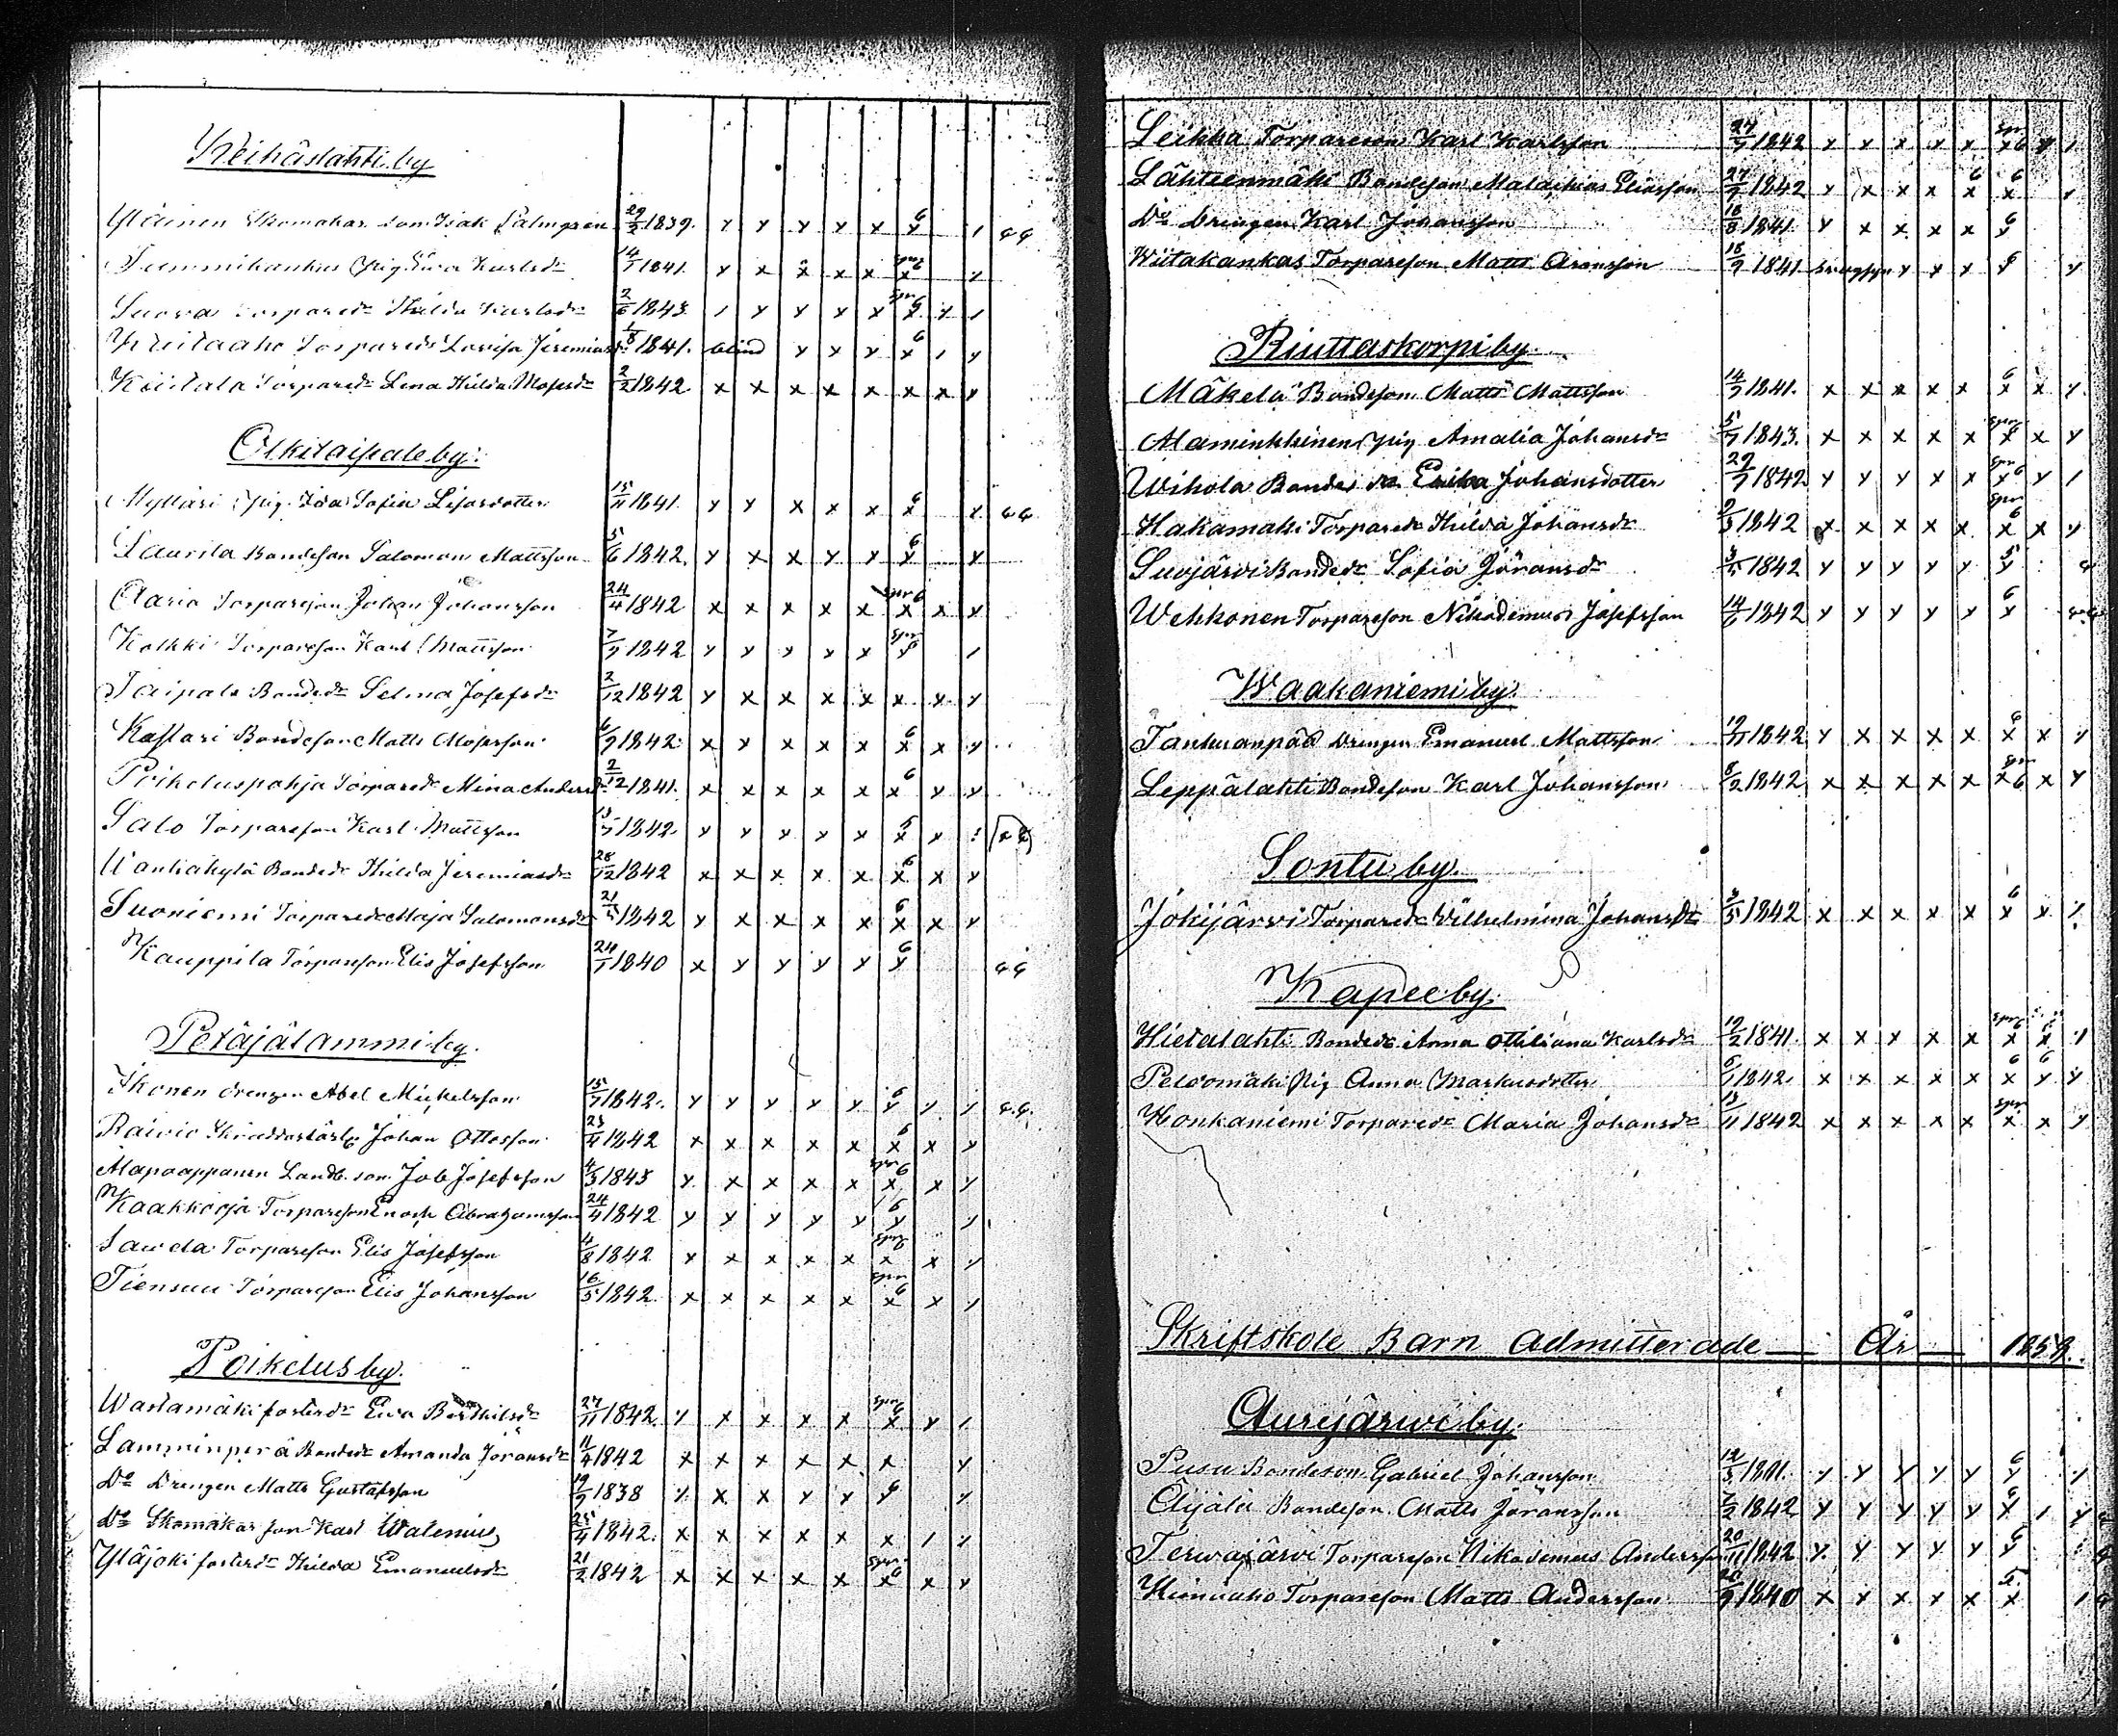 Keihäslahti by
Yläinen Skomakar. son Isak Palmgren 29/5 1839. y y y y x 6 y 1 44
Tummikankus Pig. Eva Karlsdr 14/7 1841. y x x x x spr 6 x y
Suova Torparedr Hilda Karlsdr 2/6 1843 1 y y y x spr 6 x y 1
Torpareds Lovisa Jeremiasd 1/8 1841. blind y x y 6 x 1 y
Kiitala Torparedr Lena Hilda Mosesdr 2/2 1842 x x x x x x x y
Olkitaipale by.
Mylläri Pig. Ida Sofia Lisasdotter 15/11 1841. y y x x x 6 x y 44
Laurila Bondeson Salomon Mattsson 5/6 1842. y x x y y 6 y y
Aaria Torpareson Johan Johansson 24/4 1842 x x x x x spr 6 x x y
Kolkki Torpareson Karl Mattsson 7/9 1842 y y y y x spr 6 y 1
Taipale Bondedr Selma Josefsdr 2/12 1842 y x x x x x y y
Kastari Bondeson Matts Mosesson 6/9 1842 x y x x x 6 x x y
Poikeluspohja Torparedr Mina Andersdr 2/12 1841. x x x x x 6 x y y
Salo Torpareson Karl Mattsson 13/7 1842. y y y y y 5 x y
Wanhakylä Bondedr Hilda Jeremiasdr 28/12 1842 x x x x x 6 x x y
Suoniemi Torparedr Maja Salomonsdr 21/5 1842 y x x x x 6 x x y
Kauppila Torpareson Elis Josefsson 24/7 1840 x y y y y 6 y 44
Petäjälammi by.
Ikonen drengen Abel Mickelsson 15/7 1842. y y y y y 6 y y y 44.
Raivio Johan Ottosson 23/4 1842 x x x x x 6 x x y
Alapaappanen Landb. son Job Josefsson 4/3 1845 y x x x x spr 6 x x y
Kaakkooja Torpareson Enoch Abrahamsson 24/4 1842 y y y y y 6 y y
Sawela Torpareson Elis Josefsson 4/8 1842 y x x x x spr x x y
Tiensuu Torpareson Elis Johansson 16/5 1842. x x x x x spr 6 x x y
Poikelus by.
Wastamäki fosterdr Eva Berthilsdr 27/11 1842. y x x x x spr 6 x y 1
Lamminperä Bondedr Amanda Jöransdr 11/4 1842 x x x x x x y
Do Drengen Matts Gustafsson 19/9 1838 y x x y y 6 y
Do Skomakar son Karl Walenius 25/4 1842. x x x x x x 1 y
Yläjoki fosterdr Hilda Emanuelsdr 21/2 1842 x x x x x spr 6 x x y
Leikka Torpareson Karl Karlsson 24/7 1842 y x x x x spr x 6 y 1
Lähteenmäki Bondeson Malackias Eliasson 27/7 1842 y x x x 6 x 6 x y
Do Drengen Karl Johansson 18/8 1841. y x x x x 6 y
Wiitakankas Torpareson Matts Aronsson 18/9 1841 y x x 6 y y
Riuttaskorpi by.
Mäkelä Bondeson Matts Mattsson 14/7 1841. x x x x x 6 x x y
Alaminkkinen Pig Amalia Johansdr 5/7 1843. x x x x x spr 6 x x y
Wihola Bonde dr Erika Johansdotter 29/7 1842 y y y y y spr x 6 y 1
Hakamäki Torparedr Hilda Johansdr 2/3 1842 x x x x x spr 6 x x y
Suojärvi Bondedr Sofia Jöransdr 3/5 1842 y y y y y 5 y 4
Wehkonen Torpareson Nikodemus Josefsson 14/6 1842 y y y y y 6 y 44
Waakaniemi by.
Tanhuanpää Drengen Emanuel Mattsson 19/11 1842 y x x x x 6 x x y
Leppälahti Bondeson Karl Johansson 8/2 1842 x x x x x spr x 6 x y
Sontu by.
Jokijärvi Torparedr Vilhelmina Johansdr 3/5 1842 x x x x x 6 x x y
Kapee by.
Hietalahti Bondedr Anna Ottiliana Karlsdr 19/2 1841. x x x x x spr 6 x x y
Peldomäki Pig Anna Markusdotter 6/7 1842. x x x x x 6 x 6 y y
Honkaniemi Torparedr Maria Johansdr 13/11 1842 x x x x x spr x x y
Skriftskole Barn Admitterade År 1858.
Aurejärwi by.
Pusu Bondeson Gabriel Johansson 12/3 1801. y y y y y 6 y y
Äijälä Bondeson Matts Jöransson 7/2 1842 y y y y y 6 x 1 y
Terwajärvi Torpareson Nikodemus Andersson 20/11 1842 y y y y y 6 y
Torpareson Matts Andersson 20/9 1840 x x x x x 5 x 1